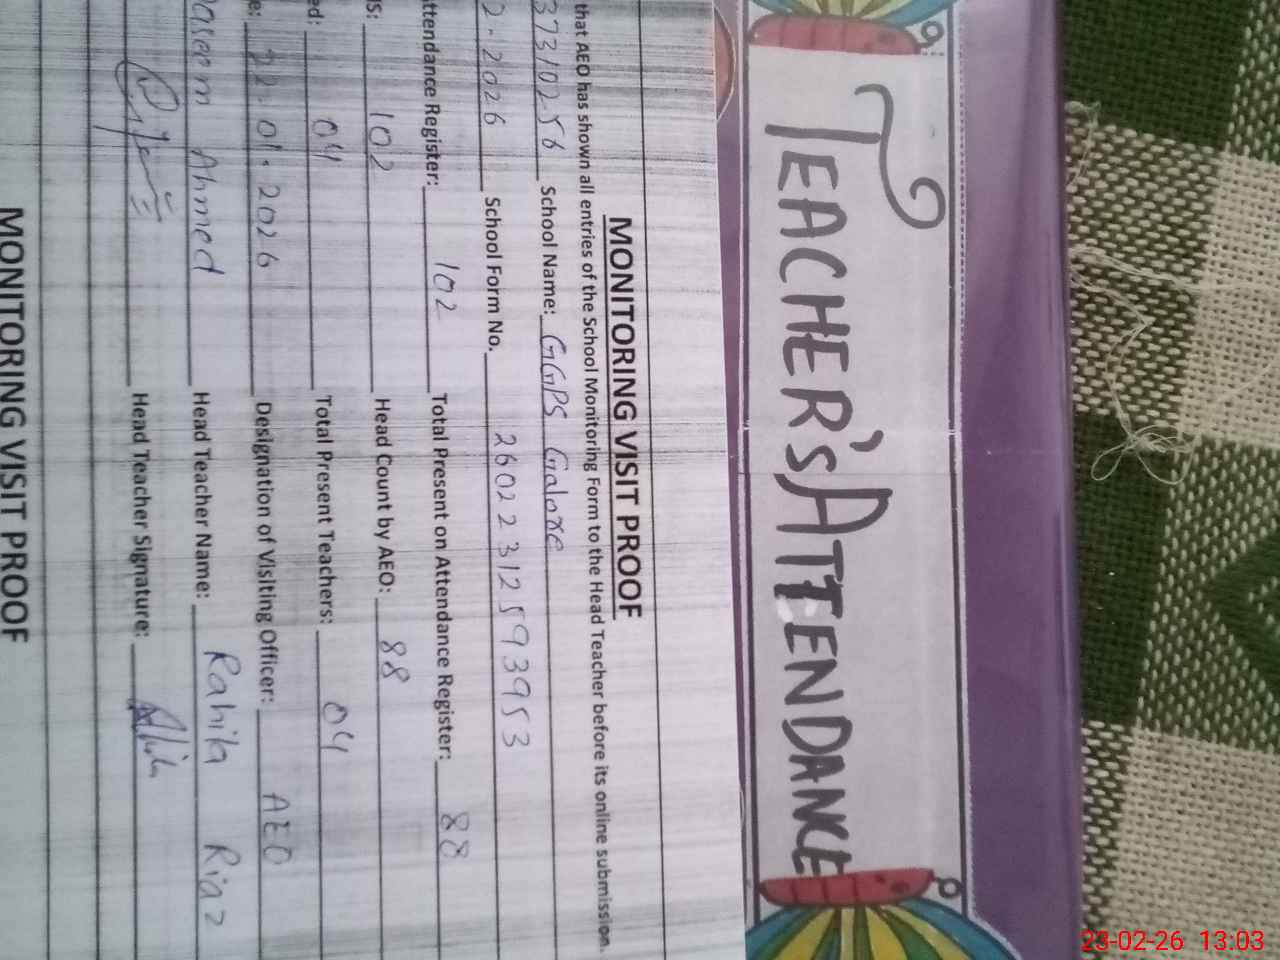 TEACHER'S ATTENDANCE
MONITORING VISIT PROOF
that AEO has shown all entries of the School Monitoring Form to the Head Teacher before its online submission.
37310256 School Name: GGPS Galaxe
2.2026 School Form No. 26022312593953
ttendance Register: 102 Total Present on Attendance Register: 88
s: 102 Head Count by AEO: 88
ed: 04 Total Present Teachers: 04
e: 22.01.2026 Designation of Visiting Officer: AEO
aseem Ahmed Head Teacher Name: Rahila Riaz
Head Teacher Signature:
MONITORING VISIT PROOF
23-02-26 13:03